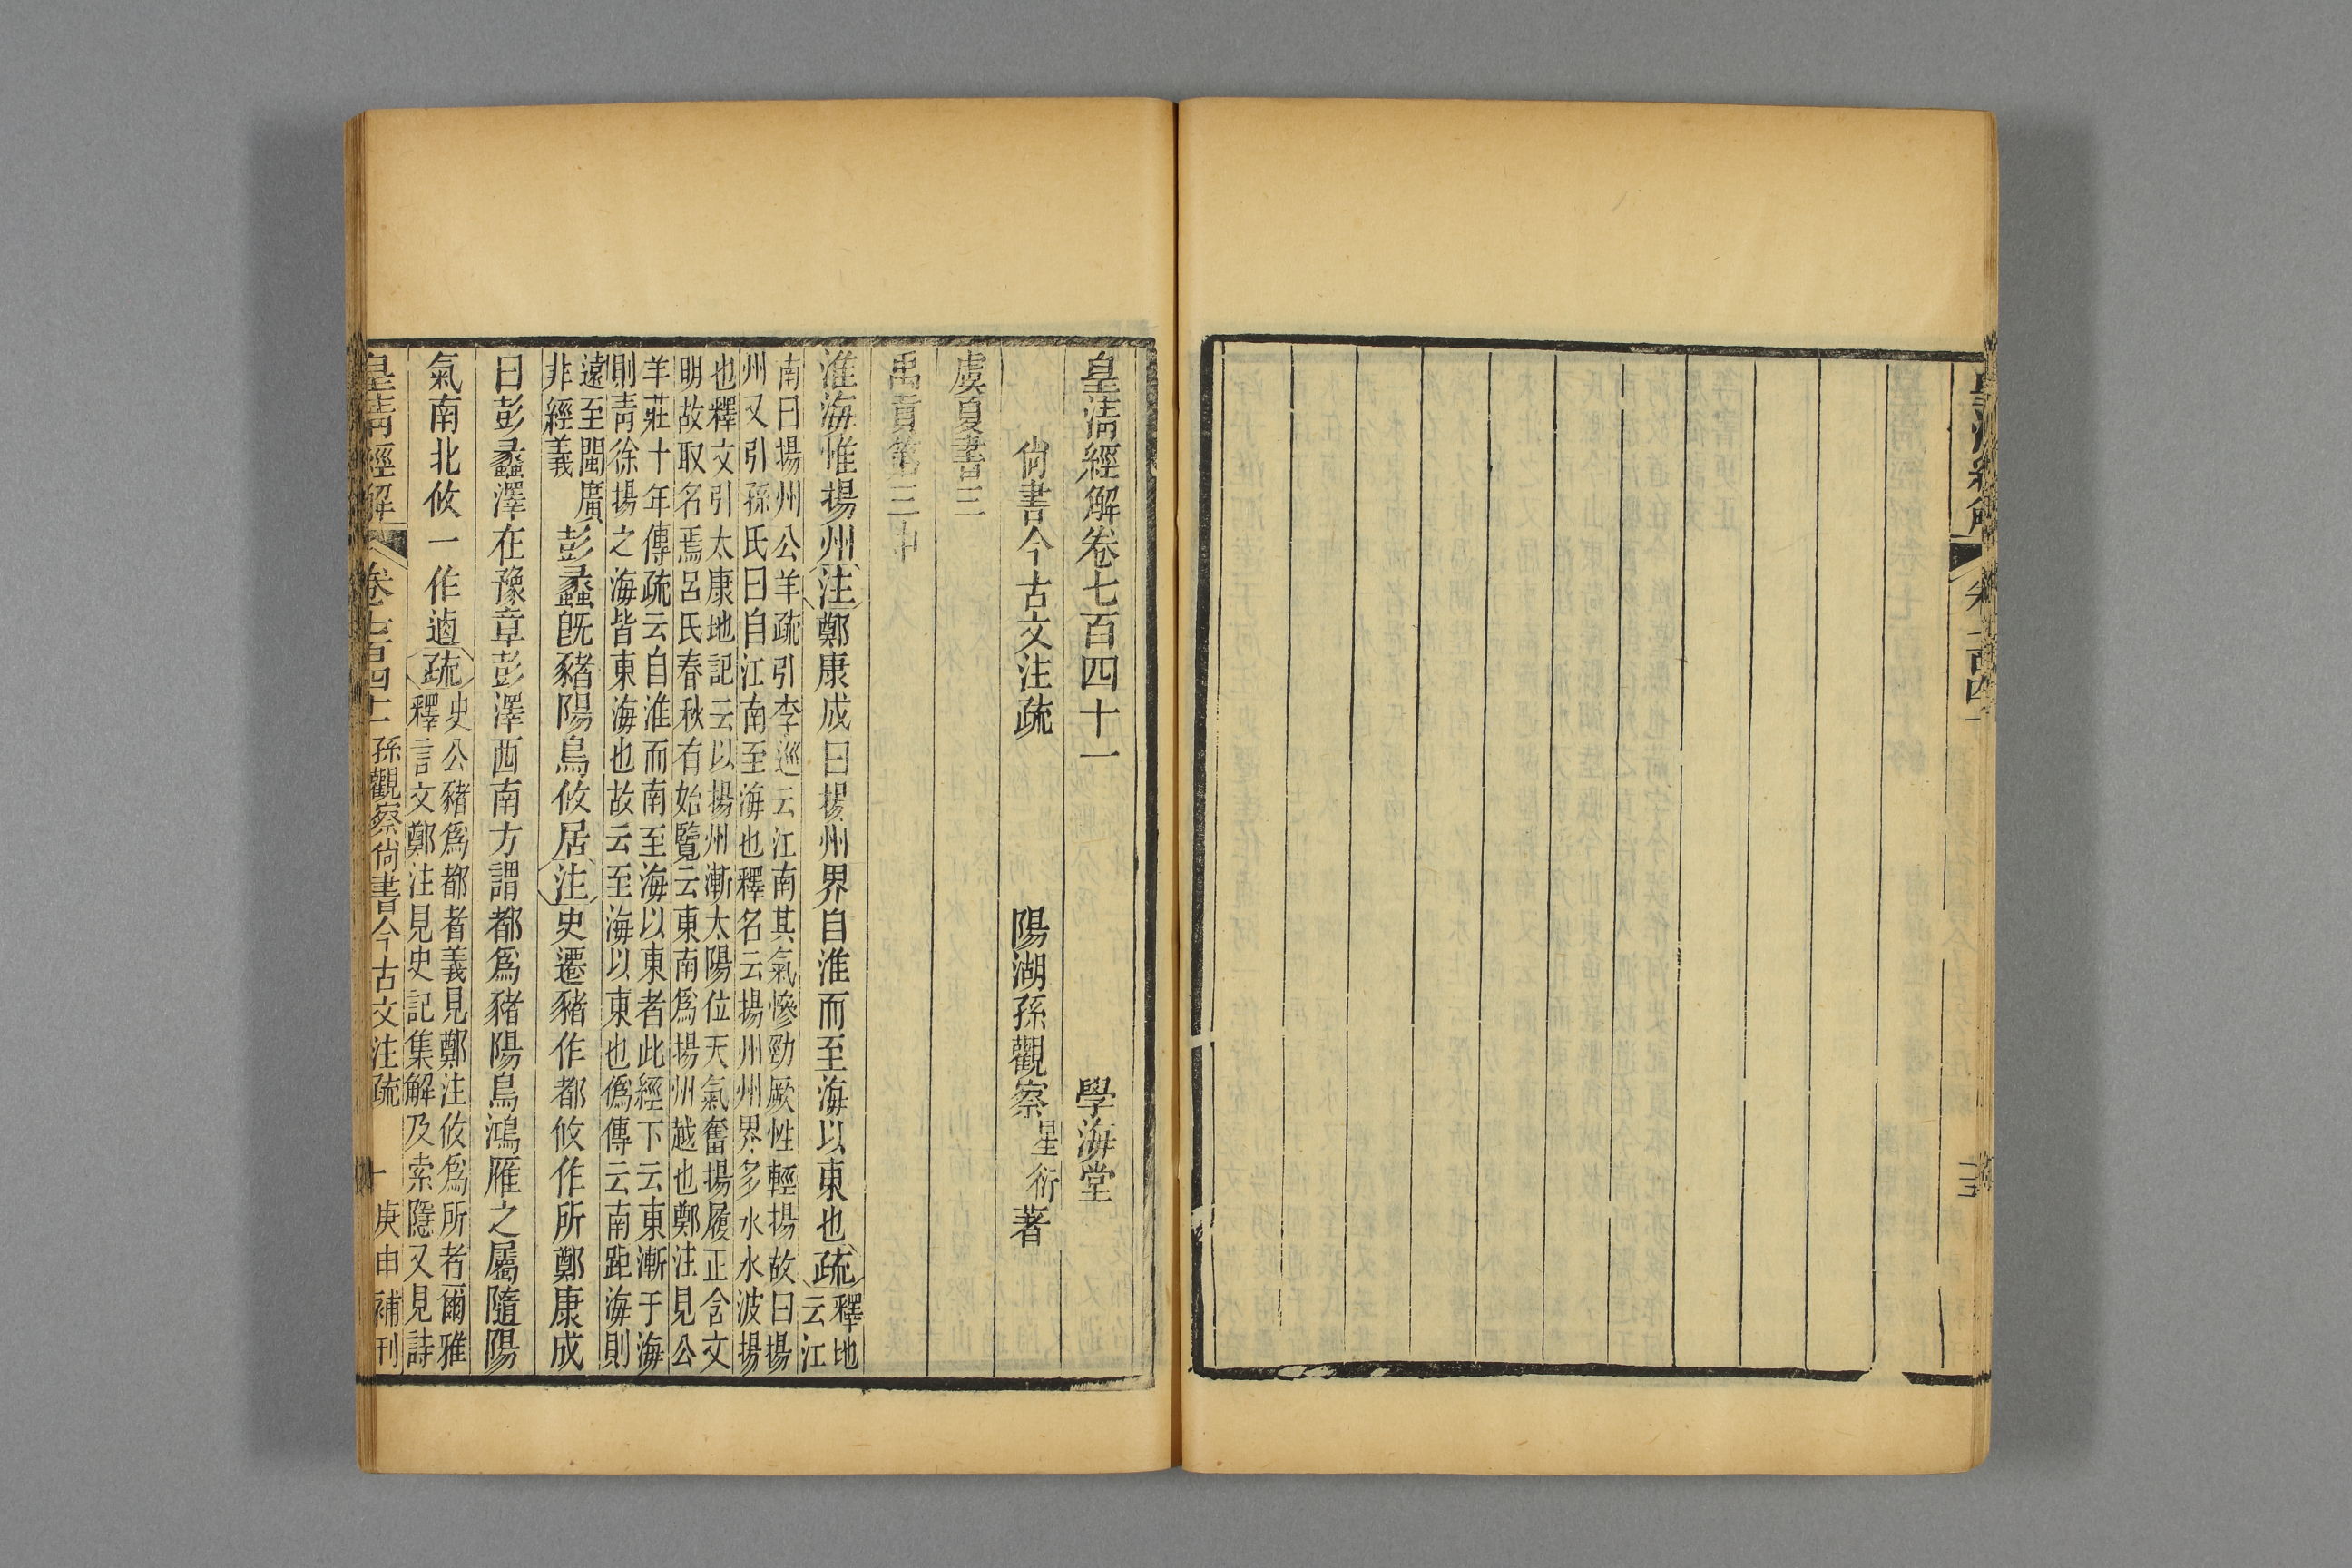 皇清經解卷七百四十一 學海堂
尙書今古文注疏 陽湖孫觀察星衍著
虞夏書三
禹貢第三中
淮海惟揚州注鄭康成曰揚州界自淮而至海以東也疏釋地云江
南曰揚州公羊疏引李巡云江南其氣慘勁厥性輕揚故曰揚
州又引孫氏曰自江南至海也釋名云揚州州界多水水波揚
也釋文引太康地記云以揚州漸太陽位天氣奮揚履正含文
明故取名焉呂氏春秋有始覽云東南爲揚州越也鄭注見公
羊莊十年傳疏云自淮而南至海以東者此經下云東漸于海
則靑徐揚之海皆東海也故云至海以東也僞傳云南距海則
遠至閩廣
非經義
彭蠡旣豬陽鳥攸居注史遷豬作都攸作所鄭康成
曰彭蠡澤在豫章彭澤西南方謂都爲豬陽鳥鴻雁之屬隨陽
氣南北攸一作逌疏史公豬爲都者義見鄭注攸爲所者爾雅
釋言文鄭注見史記集解及索隱又見詩
皇清經解 卷七百四十一 孫觀察尙書今古文注疏 一 庚申補刊